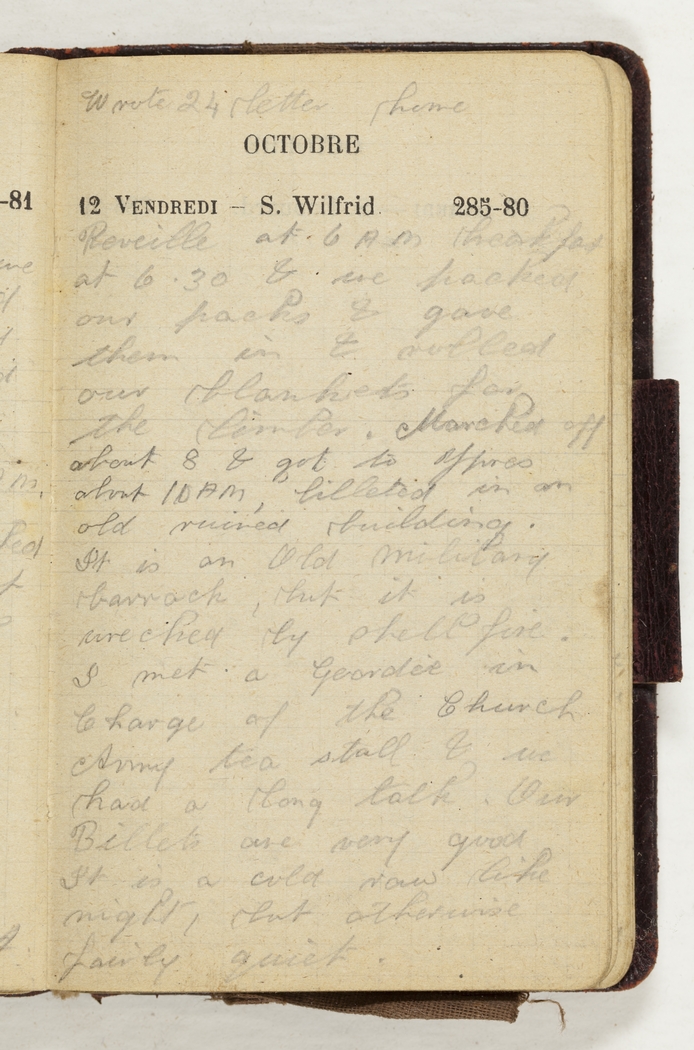 -81
Wrote 24 letter home
OCTOBRE
12 VENDREDI – S. Wilfrid 285-80
Reveille at 6 AM breakfas
at 6.30 & we packed
our packs & gave
them in & rolled
our blankets for
the limber. Marched off
about 8 & got to Ypres
about 10 AM, billeted in an
old ruined building.
It is an Old Military
barrack, but it is
wrecked by shell fire.
I met a Geordie in
Charge of the Church
Army tea stall & we
had a long talk. Our
Billets are very good
It is a cold raw like
night, but otherwise
fairly quiet.